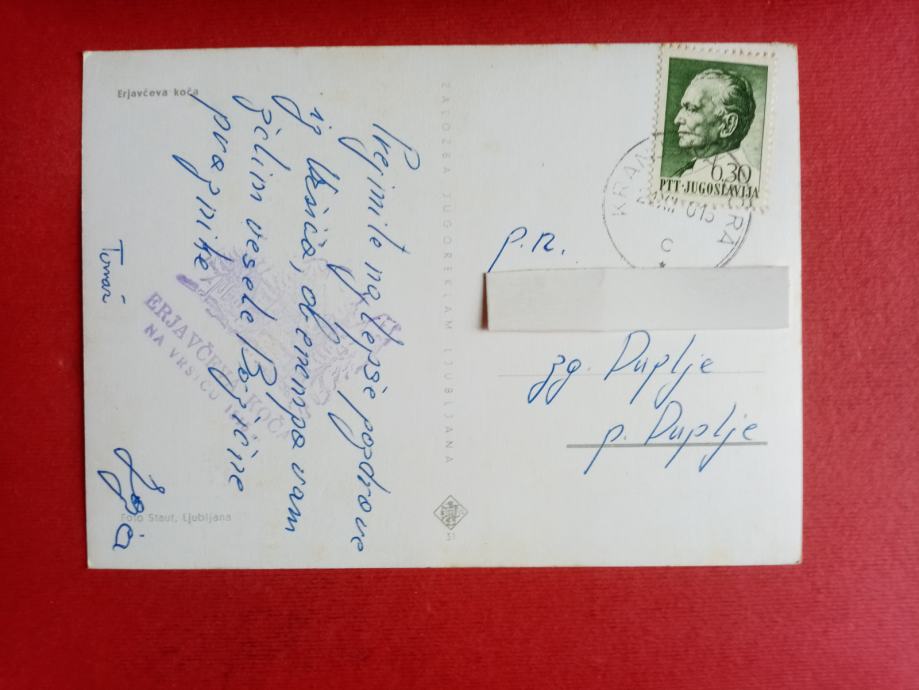 Erjavčeva koča
Prejmite najlepše pozdrave
iz Vršiča, obenem pa vam
želim vesele Božične
praznike
Tumač
ERJAVČEVA KOČA
NA VRŠIČU
Foto Staut, Ljubljana
ZALOŽBA JUGOREKLAM LJUBLJANA
51
0,30
PTT·JUGOSLAVIJA
KRANJ RA
XII
C
p.n.
zg. Duplje
p. Duplje